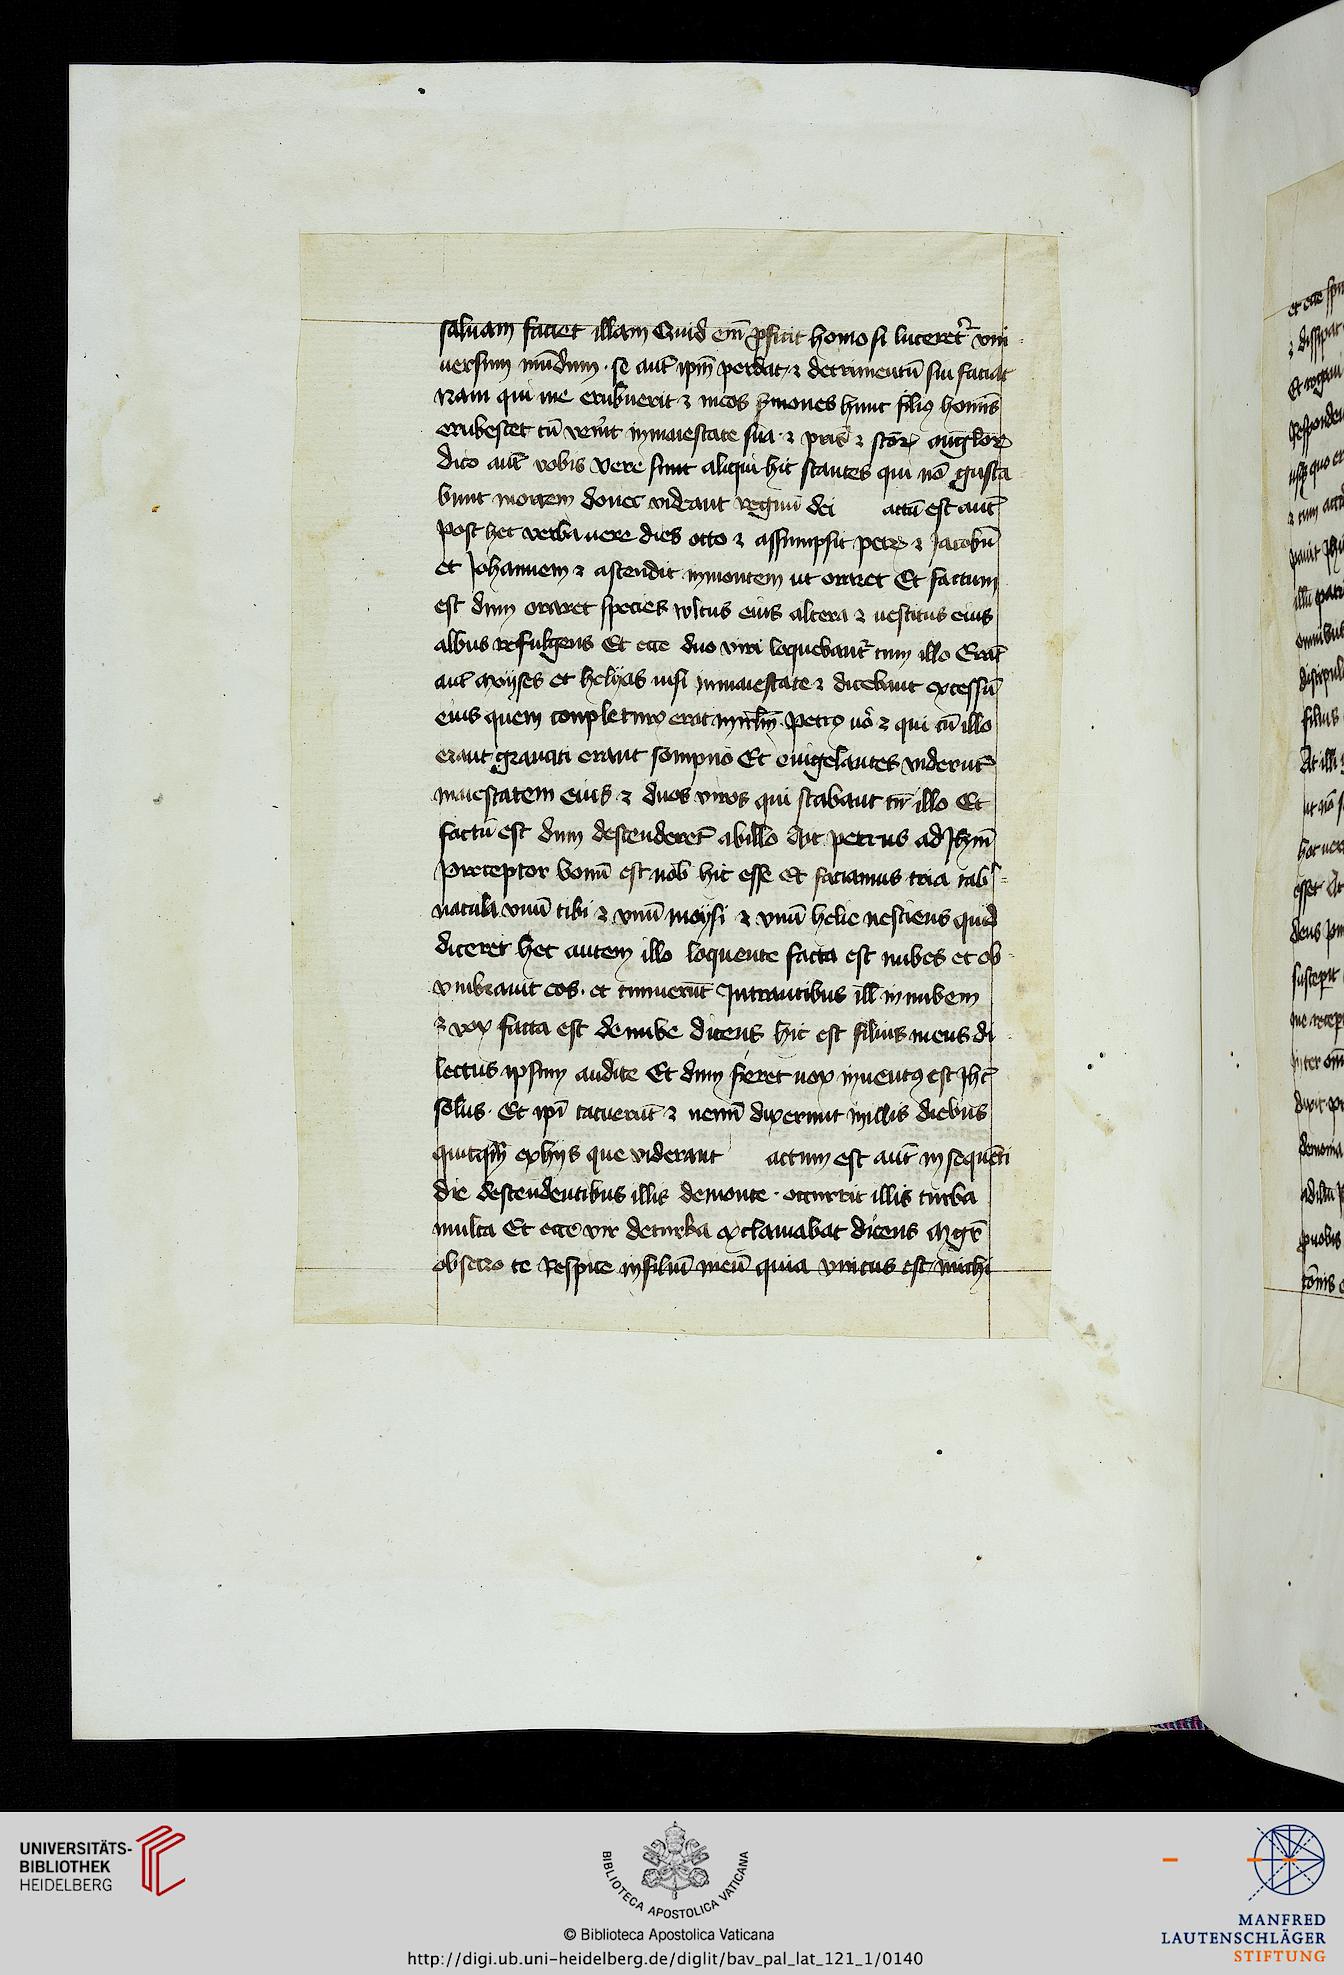 saluam faciet illam Quid em̄ ꝓficit homo si luceretᷣ vni
uersum mūdum · se aut̄ ip̄m perdat · ⁊ detrimentū sui faciat
Nam qui me erubuerit ⁊ meos ẜmones hunc filiꝯ homīs
erubescet cū veīt in maiestate sua · ⁊ pr̄is ⁊ scōꝝ angl̄oꝝ
dico aut̄ vobis vere sunt aliqui hic stantes qui nō gusta
bunt mortem donec videant regnū dei actū est aut̄
post hec verba uere dies octo ⁊ assumpsit petꝝ ⁊ Jacobū
et Johannem ⁊ ascendit in montem ut oraret Et factum
est dum oraret species wltus eius altera ⁊ uestitus eius
albus refulgens Et ecce duo viri loquebantᷣ cum illo Erāt
aut̄ Moyses et helyas uisi in maiestate ⁊ dicebant excessū
eius quem conpleturꝯ erat in irlm̄ · Petrꝯ uō ⁊ qui cū illo
erant grauati erant sompno Et euigelantes viderūt
maiestatem eius ⁊ duos viros qui stabant cū illo Et
factū est dum descenderēt ab illo Ait petrus ad Jhm̄
Preceptor bonū est nob̄ hic esse Et faciamus tria tab᷑
nacula vnū tibi ⁊ vnū moysi ⁊ vnū helie nesciens quid
diceret hec autem illo loquente facta est nubes et ob
vmbrauit eos · et timuerūt Intrantibus ill̄ in nubem
⁊ vox facta est de nube dicens hic est filius meus di
lectus ipsum audite Et dum fieret uox inuentꝯ est Jhc̄
solus · Et ip̄i tacuerūt ⁊ nemī dixerunt in illis diebus
quitqm̄ ex hijs que viderant actum est aut̄ in sequēti
die descendentibus illis de monte · occurrit illis turba
multa Et ecce vir de turba exclamabat dicens Mgr̄
obsecro te Respice in filiū meū quia vnicus est michi
UNIVERSITÄTS-
BIBLIOTHEK
HEIDELBERG
BIBLIOTECA APOSTOLICA VATICANA
© Biblioteca Apostolica Vaticana
http://digi.ub.uni-heidelberg.de/diglit/bav_pal_lat_121_1/0140
MANFRED
LAUTENSCHLÄGER
STIFTUNG